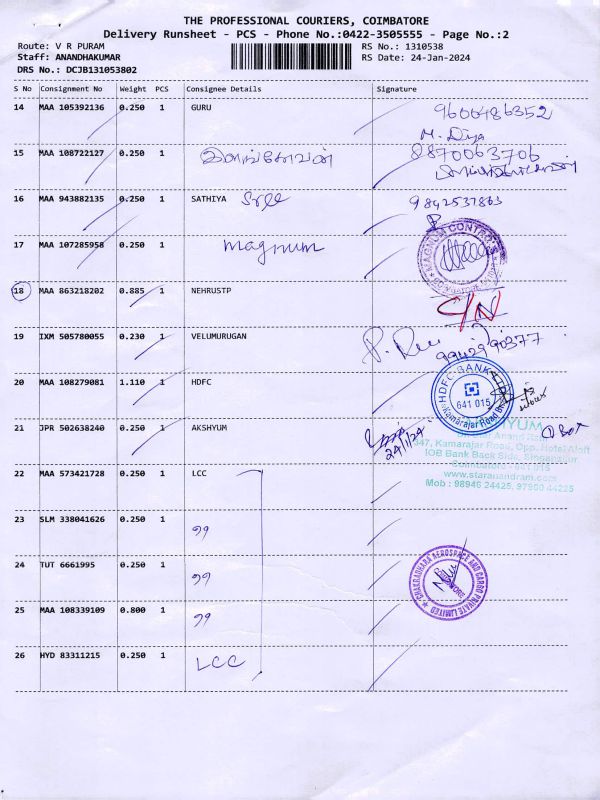 THE PROFESSIONAL COURIERS, COIMBATORE
Delivery Runsheet - PCS - Phone No.:0422-3505555 - Page No.:2
Route: V R PURAM
RS No.: 1310538
Staff: ANANDHAKUMAR
RS Date: 24-Jan-2024
DRS No.: DCJB131053802
S No Consignment No Weight PCS Consignee Details Signature
14 MAA 105392136 0.250 1 GURU 9600486352
M. Diya
15 MAA 108722127 0.250 1 இளங்கோவன் 8870063706
16 MAA 943882135 0.250 1 SATHIYA Sree 9842537863
17 MAA 107285958 0.250 1 magnum
MAGNUM
18 MAA 863218202 0.885 1 NEHRUSTP C/N
19 IXM 505780055 0.230 1 VELUMURUGAN 9942990377
20 MAA 108279081 1.110 1 HDFC
HDFC BANK
641 015
Kamarajar Road
21 JPR 502638240 0.250 1 AKSHYUM
24/1/24
347, Kamarajar Road, Opp. Hotel Aloft
IOB Bank Back Side, Singanallur
Coimbatore - 641 015
www.staranandram.com
Mob : 98946 24425, 97950 44225
22 MAA 573421728 0.250 1 LCC
23 SLM 338041626 0.250 1 ,,
24 TUT 6661995 0.250 1 ,,
CHAKRADHARA AEROSPACE AND CARGO PRIVATE LIMITED
25 MAA 108339109 0.800 1 ,,
26 HYD 83311215 0.250 1 LCC